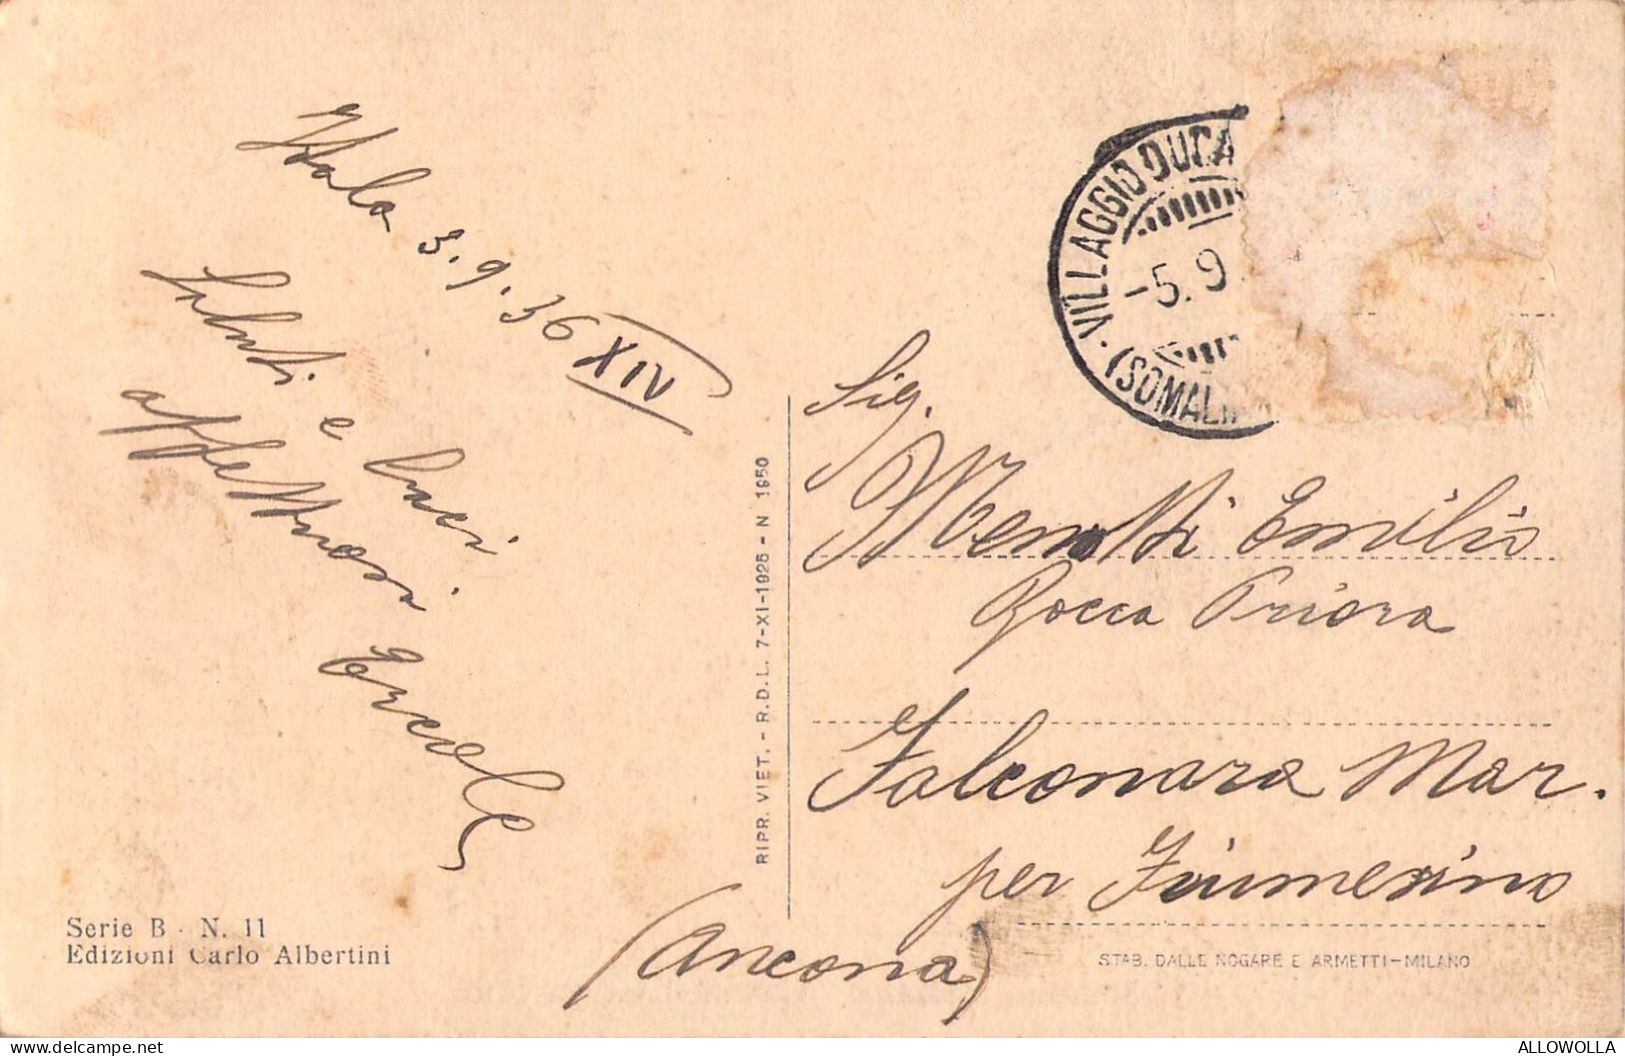 Itala 3.9.36 XIV
Saluti e baci
affettuosi
Ercole
Serie B - N. 11
Edizioni Carlo Albertini
RIPR. VIET. - R.D.L. 7-XI-1925 - N 1950
VILLAGGIO DUCA
-5. 9
(SOMALI
Sig.
Menotti Emilio
Rocca Priora
Falconara Mar.
per Fiumesino
(Ancona)
STAB. DALLE NOGARE E ARMETTI-MILANO
ALLOWOLLA